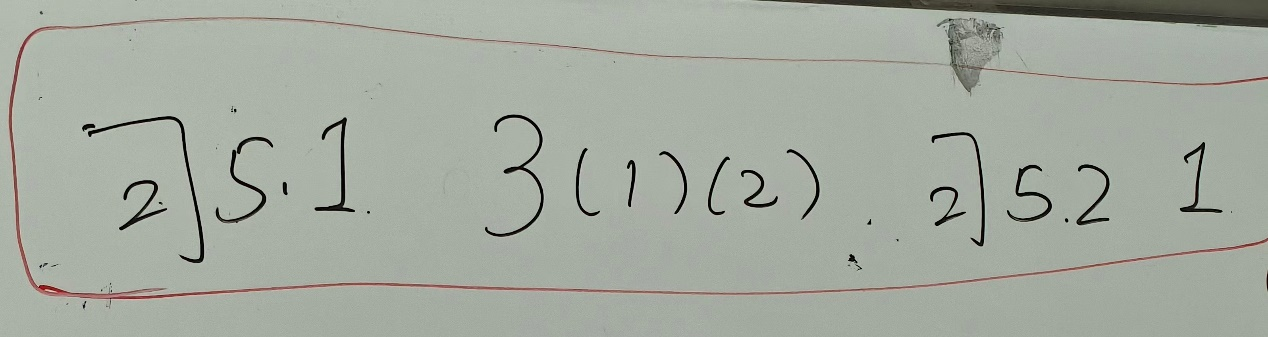 习5.1 3(1)(2). 习5.2 1